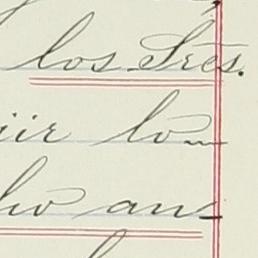 los Sres.
uir lo-
ho an-